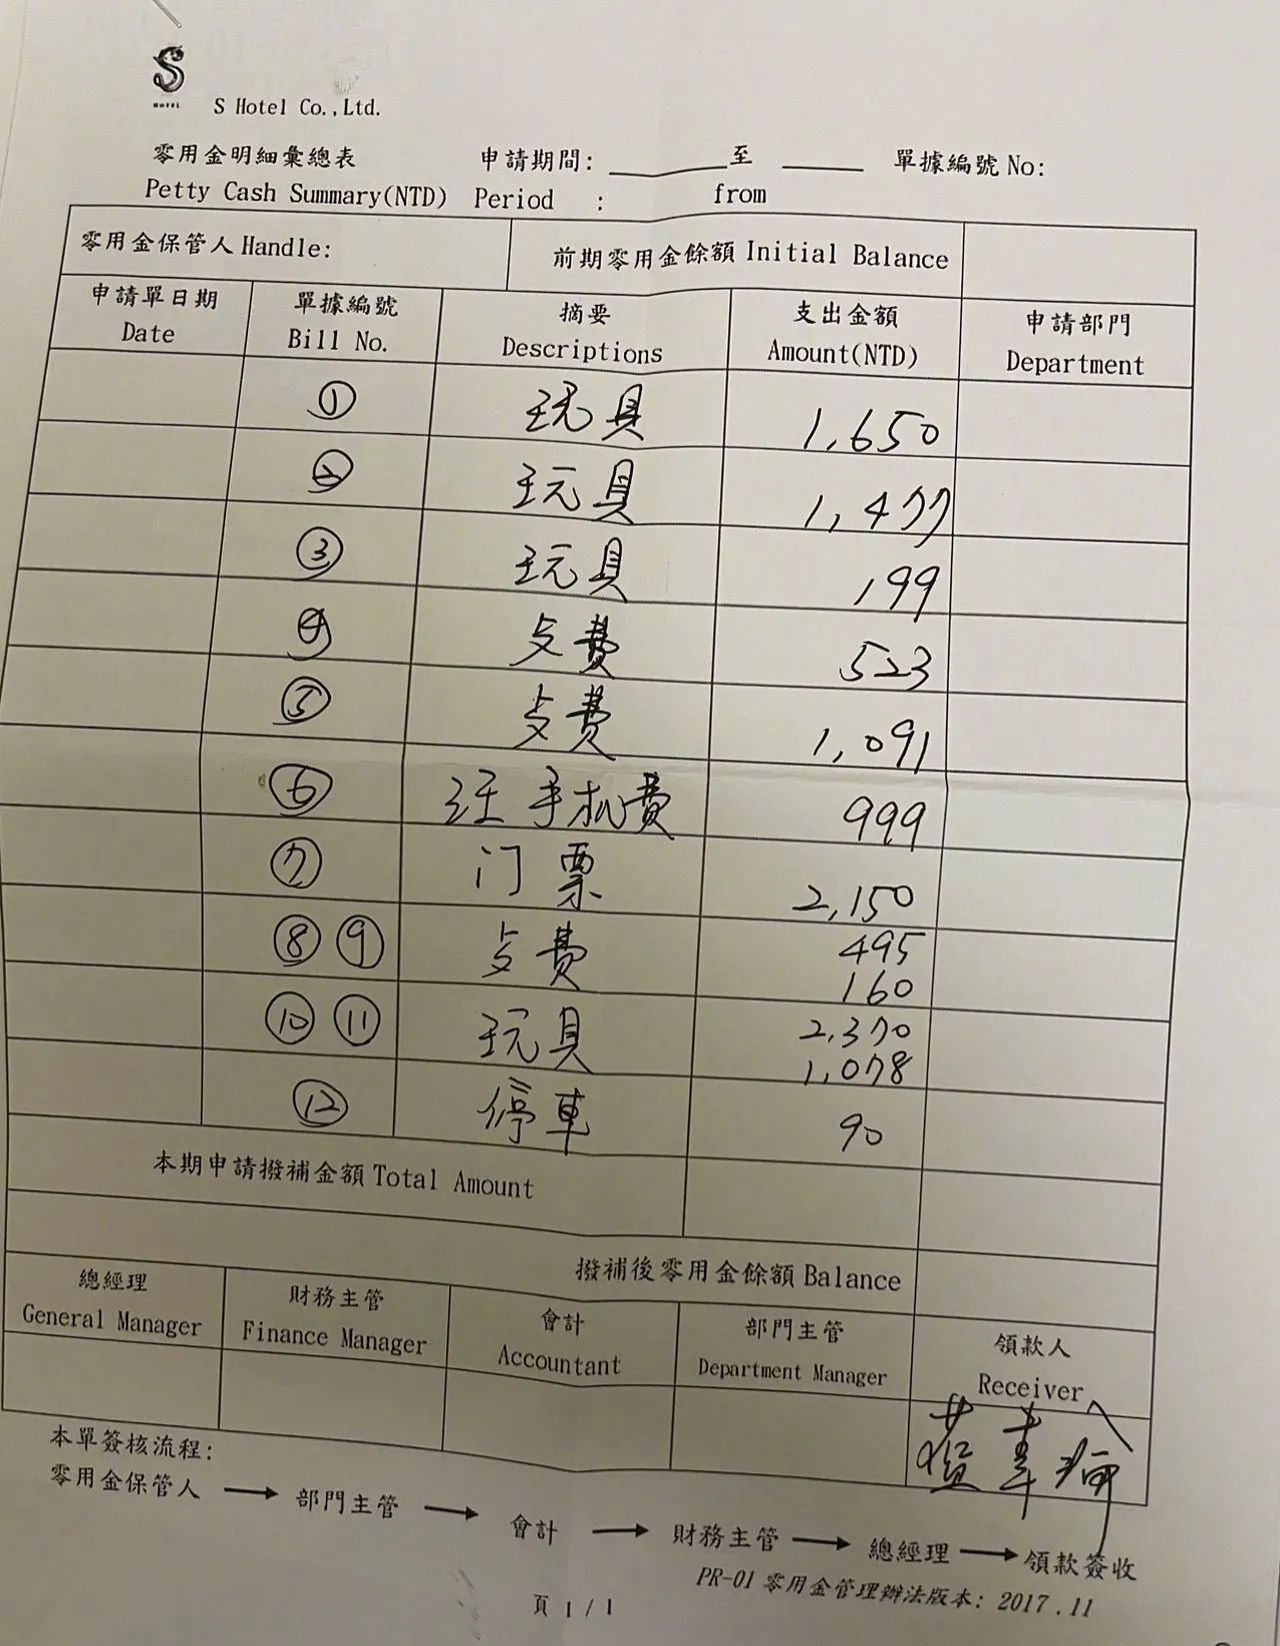 S
HOTEL
S Hotel Co.,Ltd.
零用金明細彙總表 申請期間: 至 單據編號 No:
Petty Cash Summary(NTD) Period : from
零用金保管人 Handle: 前期零用金餘額 Initial Balance
申請單日期 單據編號 摘要 支出金額 申請部門
Date Bill No. Descriptions Amount(NTD) Department
① 玩具 1,650
② 玩具 1,477
③ 玩具 199
④ 费 523
⑤ 费 1,091
⑥ 汪 手机費 999
⑦ 门票 2,150
⑧ ⑨ 费 495
160
⑩ ⑪ 玩具 2,370
1,078
⑫ 停車 90
本期申請撥補金額 Total Amount
撥補後零用金餘額 Balance
總經理 財務主管 會計 部門主管 領款人
General Manager Finance Manager Accountant Department Manager Receiver
本單簽核流程:
零用金保管人 → 部門主管 → 會計 → 財務主管 → 總經理 → 領款簽收
PR-01 零用金管理辦法版本: 2017.11
頁 1 / 1